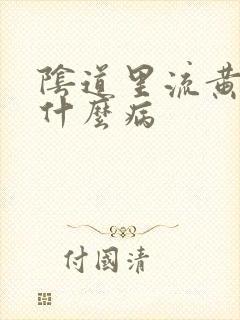 陰道里流黄
什麼病
付國清